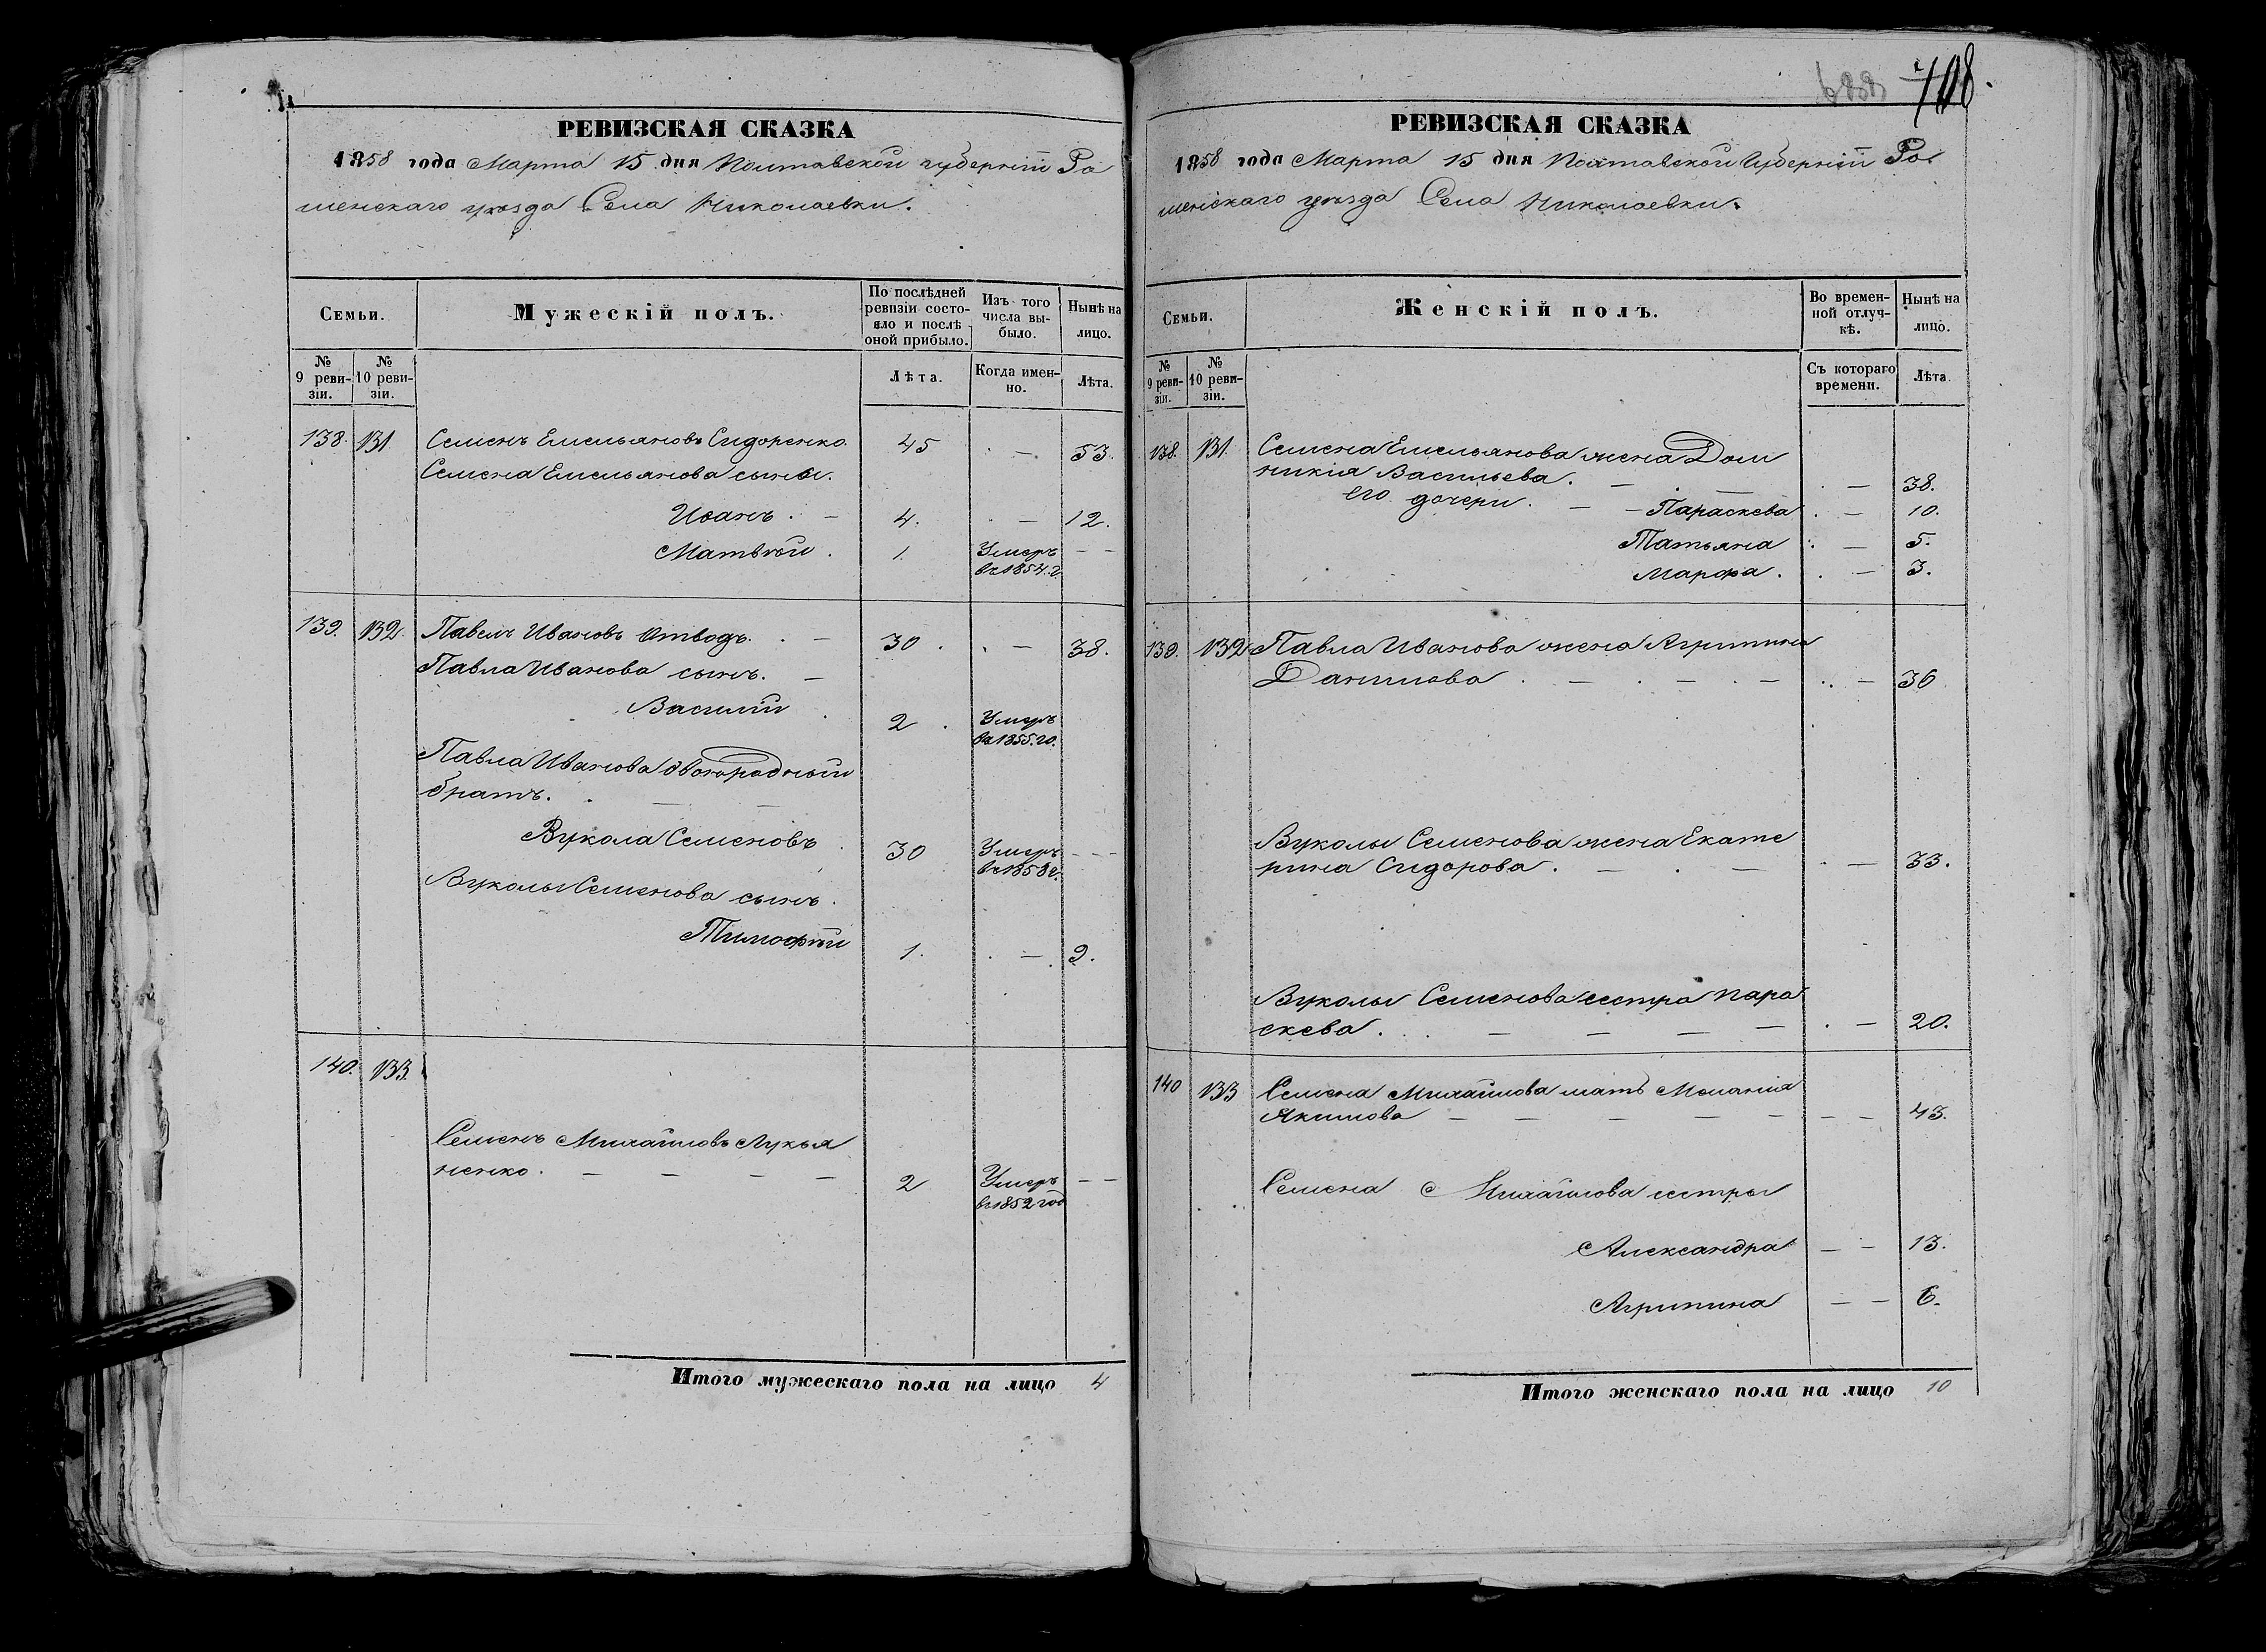 РЕВИЗСКАЯ СКАЗКА
1858 года Марта 15 дня Полтавской губерніи Ро
менскаго уѣзда Села Николаевки.
Семьи.
Мужескій полъ.
По послѣдней
ревизіи состо-
яло и послѣ
оной прибыло.
Изъ того
числа вы-
было.
Нынѣ на
лицо.
№
9 реви-
зіи.
№
10 реви-
зіи.
Лѣта.
Когда имен-
но.
Лѣта.
138. 131. Семенъ Емельяновъ Сидоренко. 45 . — 53.
Семена Емельянова сыны.
Иванъ . — 4. . — 12.
Матвѣй . 1. Умеръ — —
въ 1854. г.
139. 132. Павелъ Ивановъ Отводъ. . — 30 . . — 38.
Павла Иванова сынъ. —
Василій . 2 . Умеръ
въ 1855. го.
Павла Иванова двоюродный
братъ. . — —
Вукола Семеновъ . 30 Умеръ — — —
въ 1858 г.
Вуколы Семенова сынъ.
Тимофѣй 1. . — . 9.
140. 133.
Семенъ Михайловъ Лукья
ненко . — — — — 2 Умеръ — —
въ 1852 год
Итого мужескаго пола на лицо 4
688 708.
РЕВИЗСКАЯ СКАЗКА
1858 года Марта 15 дня Полтавской Губерніи Ро
менскаго уѣзда Села Николаевки.
Семьи.
Женскій полъ.
Во времен-
ной отлуч-
кѣ.
Нынѣ на
лицо.
№
9 реви-
зіи.
№
10 реви-
зіи.
Съ котораго
времени.
Лѣта.
138. 131. Семена Емельянова жена Дом
никія Васильева. — . — . — 38.
Его дочери. — — Параскева . — 10.
Татьяна . — 5.
Марфа . . — 3.
139. 132 Павла Иванова жена Агрипина
Данилова . — . — . — . . — 36
Вуколы Семенова жена Екате
рина Сидорова . — . — . — 33.
Вуколы Семенова сестра Пара
скева . . . — — — — . — 20.
140 133 Семена Михайлова мать Меланія
Якимова — — — — — — — 43.
Семена Михайлова сестры
Александра — — 13.
Агрипина — — 6.
Итого женскаго пола на лицо 10